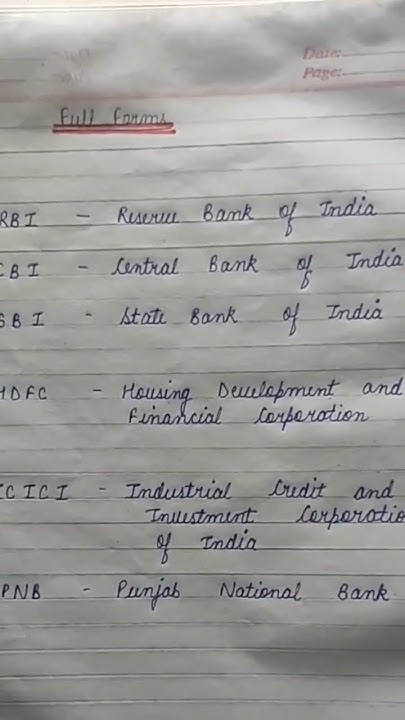 Date:
Page:
Full Forms
RBI - Reserve Bank of India
CBI - Central Bank of India
SBI - State Bank of India
HDFC - Housing Development and
Financial Corporation
ICICI - Industrial Credit and
Investment Corporatio
of India
PNB - Punjab National Bank